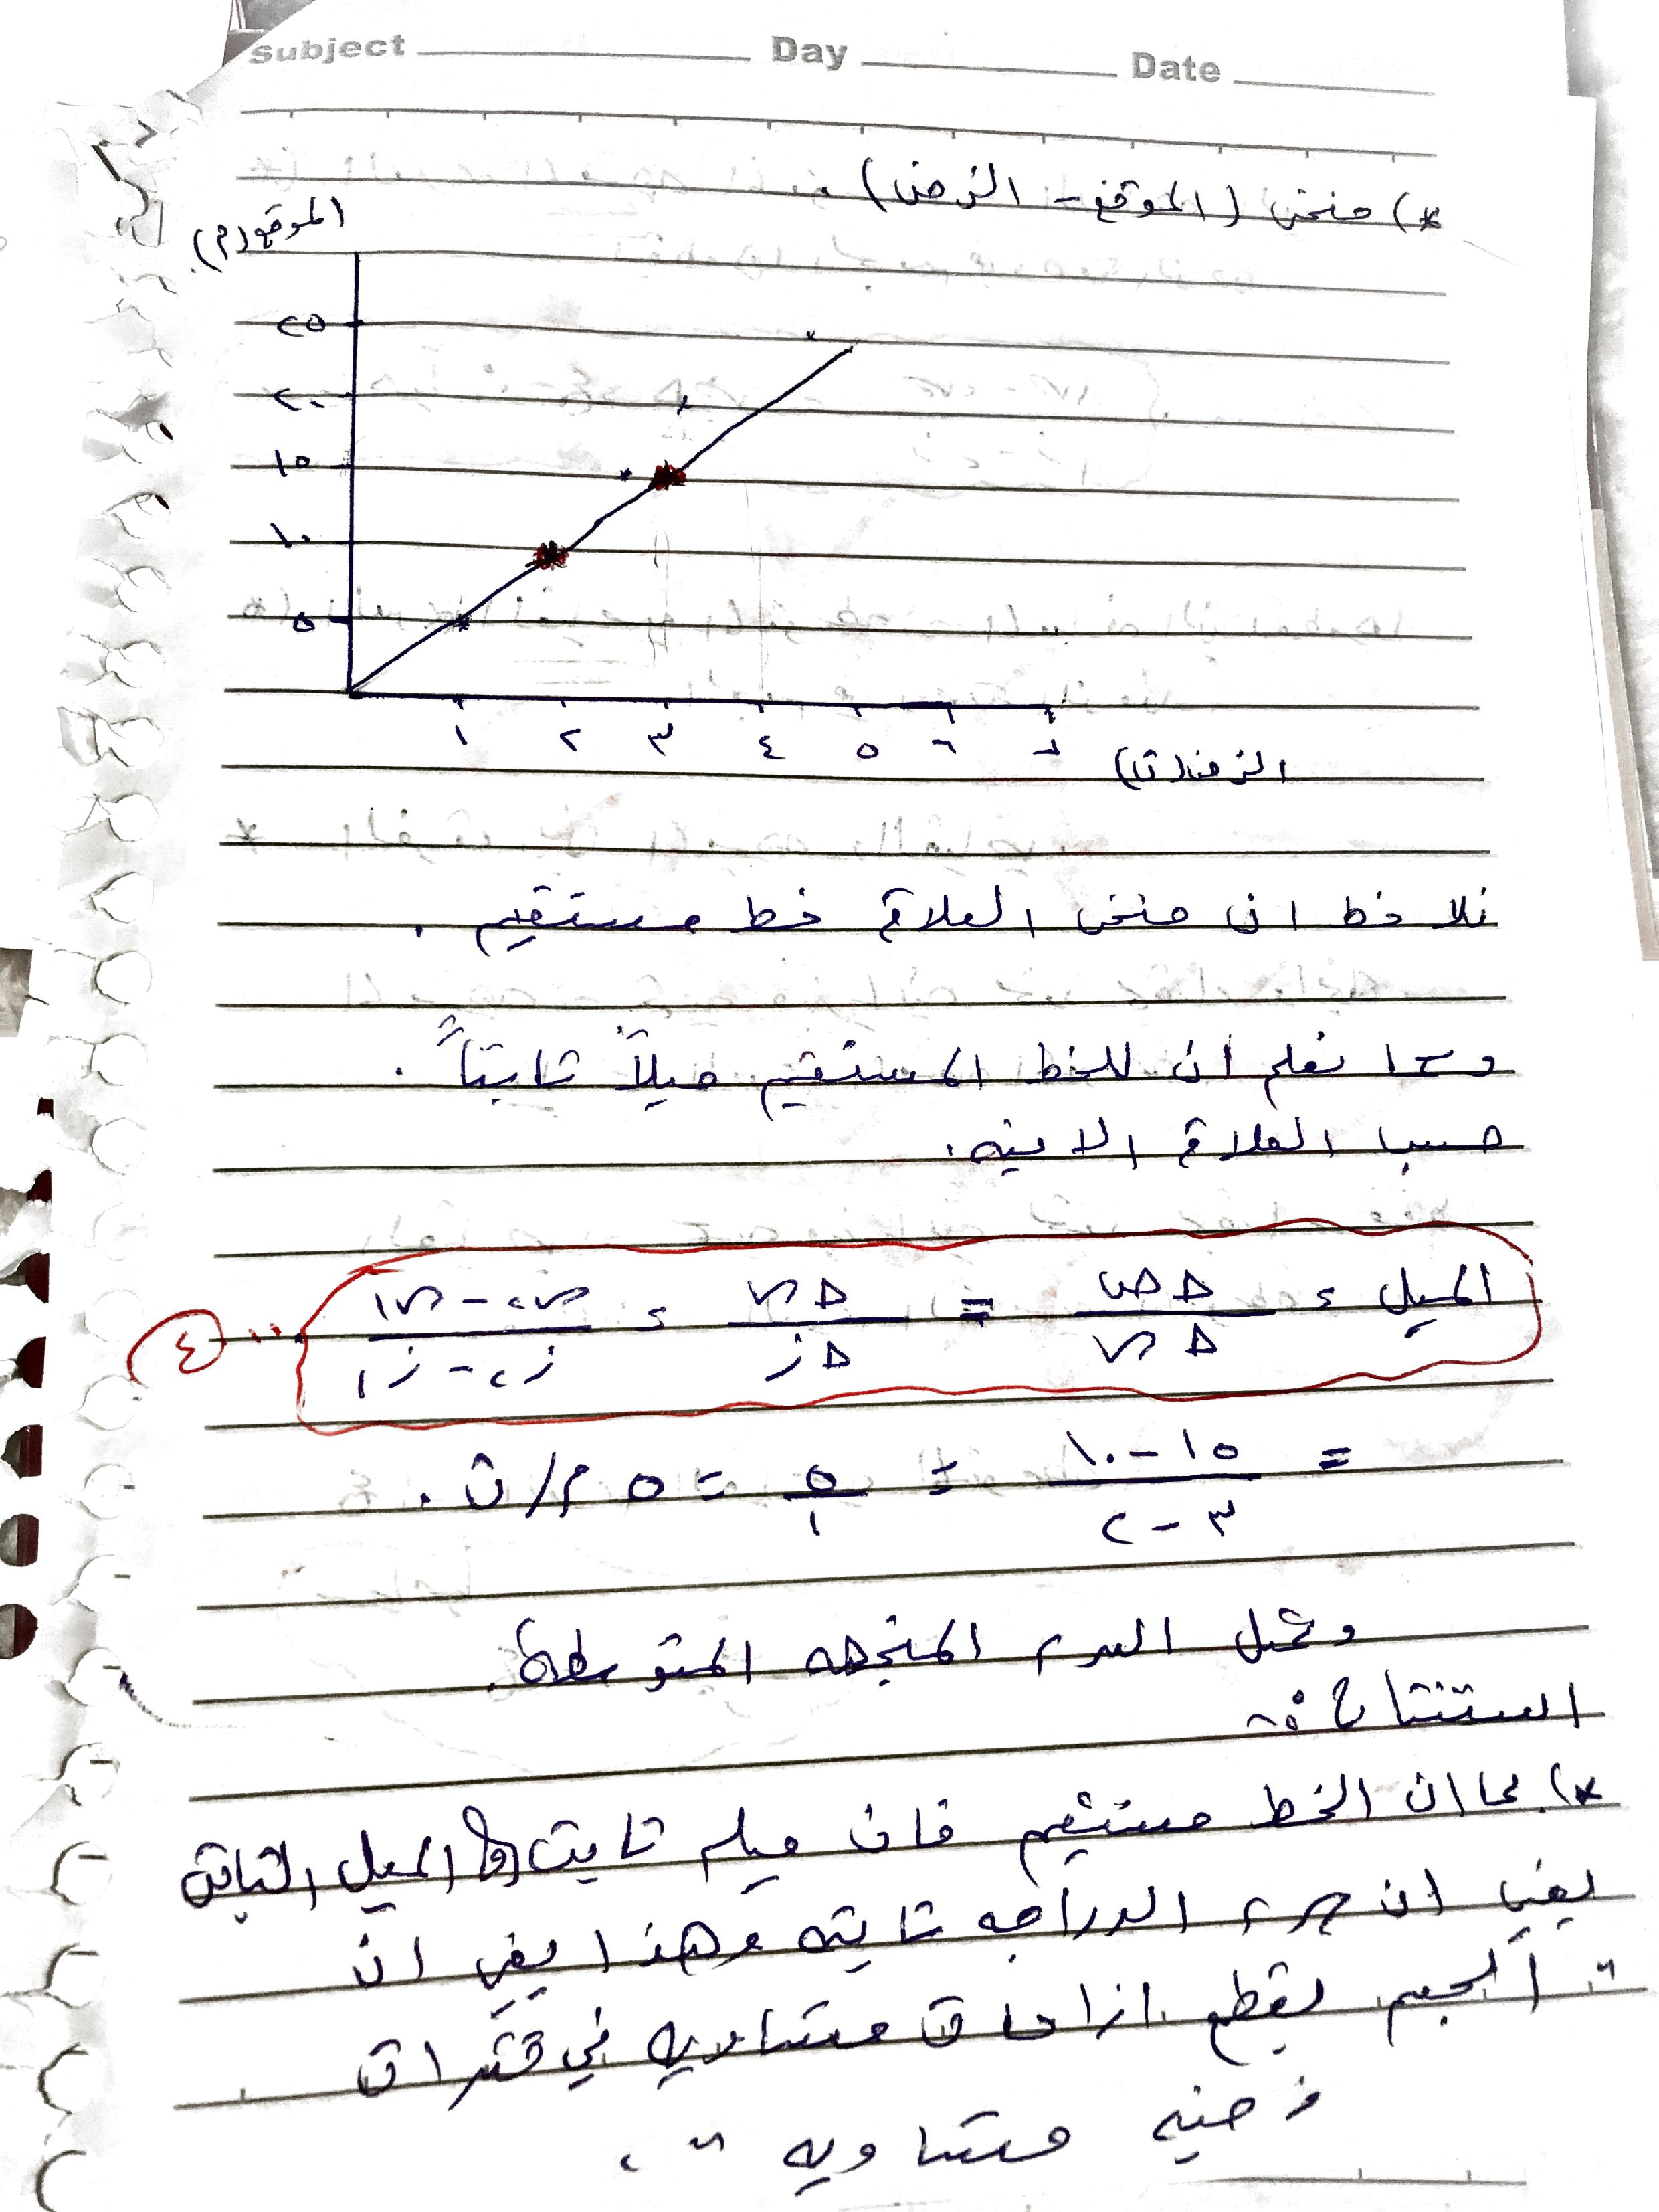 Subject Day Date
*) منحنى (الموقع - الزمن).
الموقع (م)
٢٥
٢٠
١٥
١٠
٥
١ ٢ ٣ ٤ ٥ ٦ ٧
الزمن (ث)
نلاحظ ان منحنى العلاقة خط مستقيم.
وكما نعلم ان للخط المستقيم ميلاً ثابتاً.
حسب العلاقة الاتيه.
الميل = Δص / Δس = Δس / Δز = س٢ - س١ / ز٢ - ز١ ... ٤
= ١٥ - ١٠ / ٣ - ٢ = ٥ / ١ = ٥ م/ث.
وتمثل السرعه المتجهه المتوسطة.
استنتاج :-
*) بما ان الخط مستقيم فان ميله ثابت والميل الثابت
يعني ان سرعه الدراجه ثابته وهذا يعني ان
" الجسم يقطع ازاحات متساويه في فترات
زمنيه متساويه ".